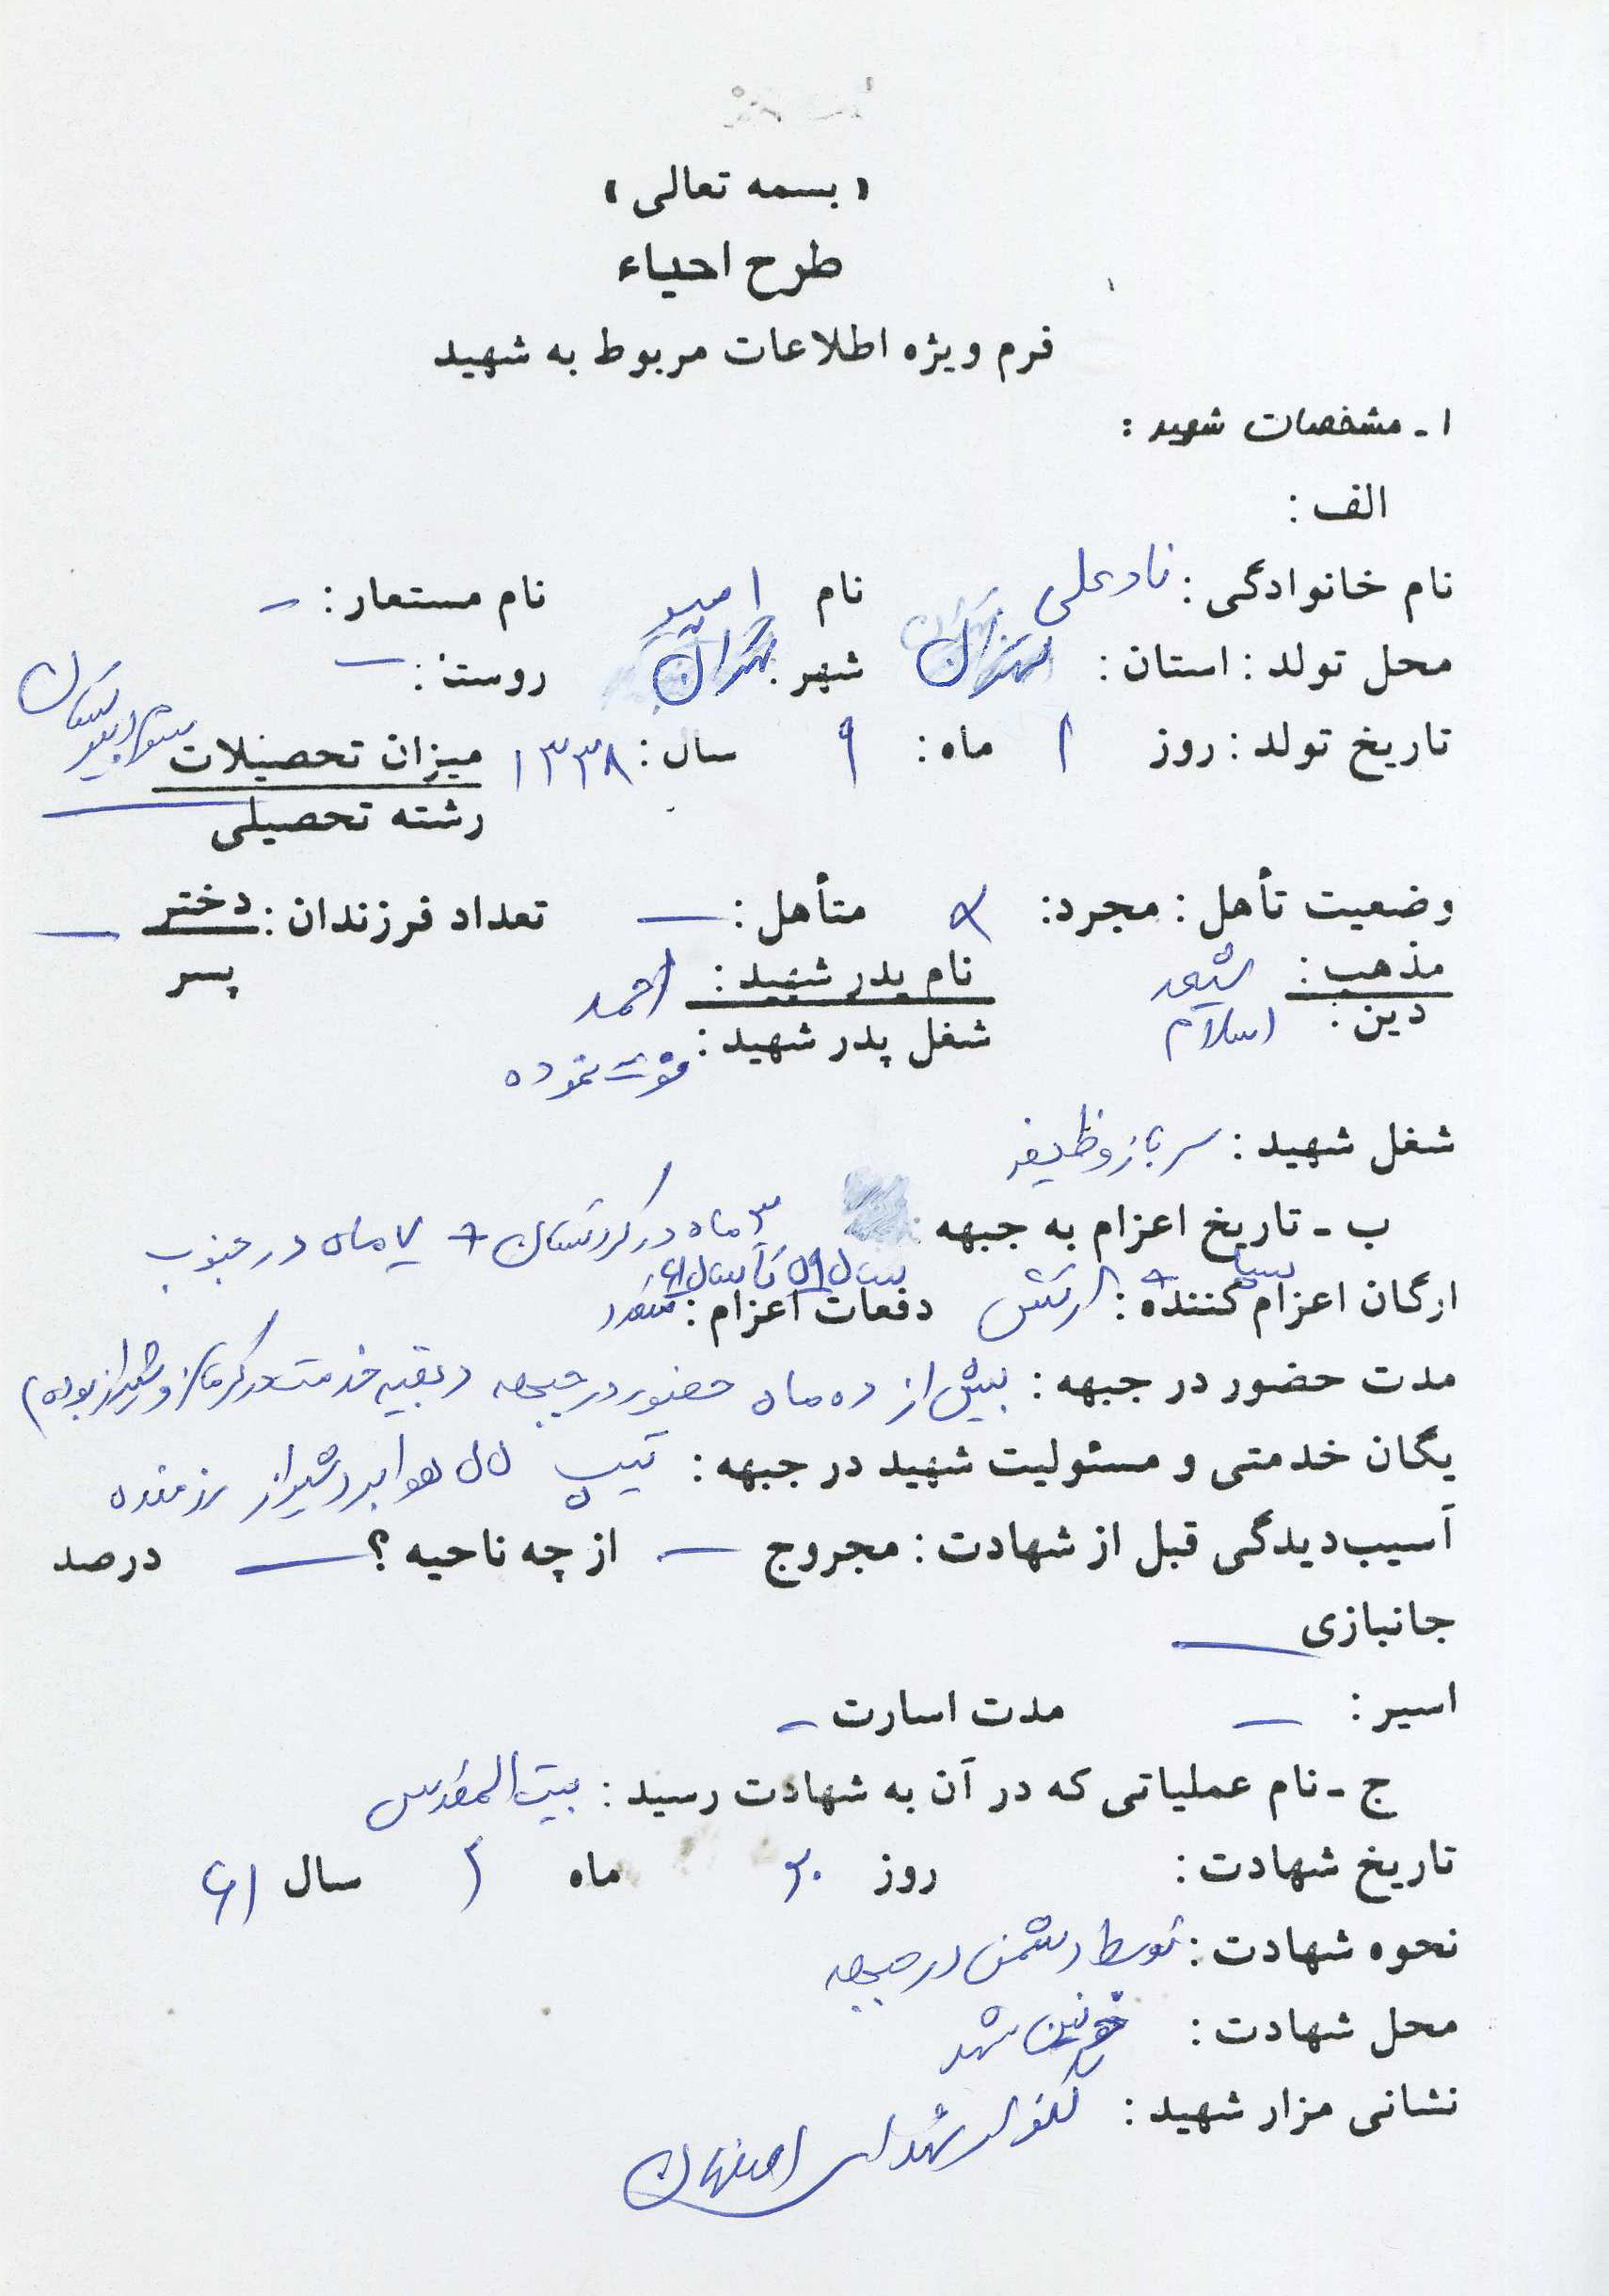 « بسمه تعالی »
طرح احیاء
فرم ویژه اطلاعات مربوط به شهید
۱ - مشخصات شهید :
الف :
نام خانوادگی : نادعلی نام امیر نام مستعار : –
محل تولد : استان : تهران شهر : تهران روستا : –
تاریخ تولد : روز ۱ ماه : ۹ سال : ۱۳۳۸ میزان تحصیلات
رشته تحصیلی
وضعیت تأهل : مجرد : متأهل : – تعداد فرزندان : دختر –
پسر
مذهب : شیعه نام پدر شهید : احمد
دین : اسلام شغل پدر شهید : فوت نموده
شغل شهید : سرباز وظیفه
ب - تاریخ اعزام به جبهه : ۳ ماه در کردستان + ۷ ماه در جنوب
سال ۵۹ تا سال ۶۱
ارگان اعزام کننده : ارتش + سپاه دفعات اعزام :
مدت حضور در جبهه : بیش از ده ماه حضور در جبهه و بقیه خدمت در و شیراز بوده)
یگان خدمتی و مسئولیت شهید در جبهه : تیپ ۵۵ هوابرد شیراز رزمنده
آسیب‌دیدگی قبل از شهادت : مجروح – از چه ناحیه ؟ – درصد
جانبازی –
اسیر : – مدت اسارت –
ج - نام عملیاتی که در آن به شهادت رسید : بیت المقدس
تاریخ شهادت : روز ۲۰ ماه ۲ سال ۶۱
نحوه شهادت : توسط دشمن در جبهه
محل شهادت : خونین شهر
نشانی مزار شهید : گلزار شهدای اصفهان